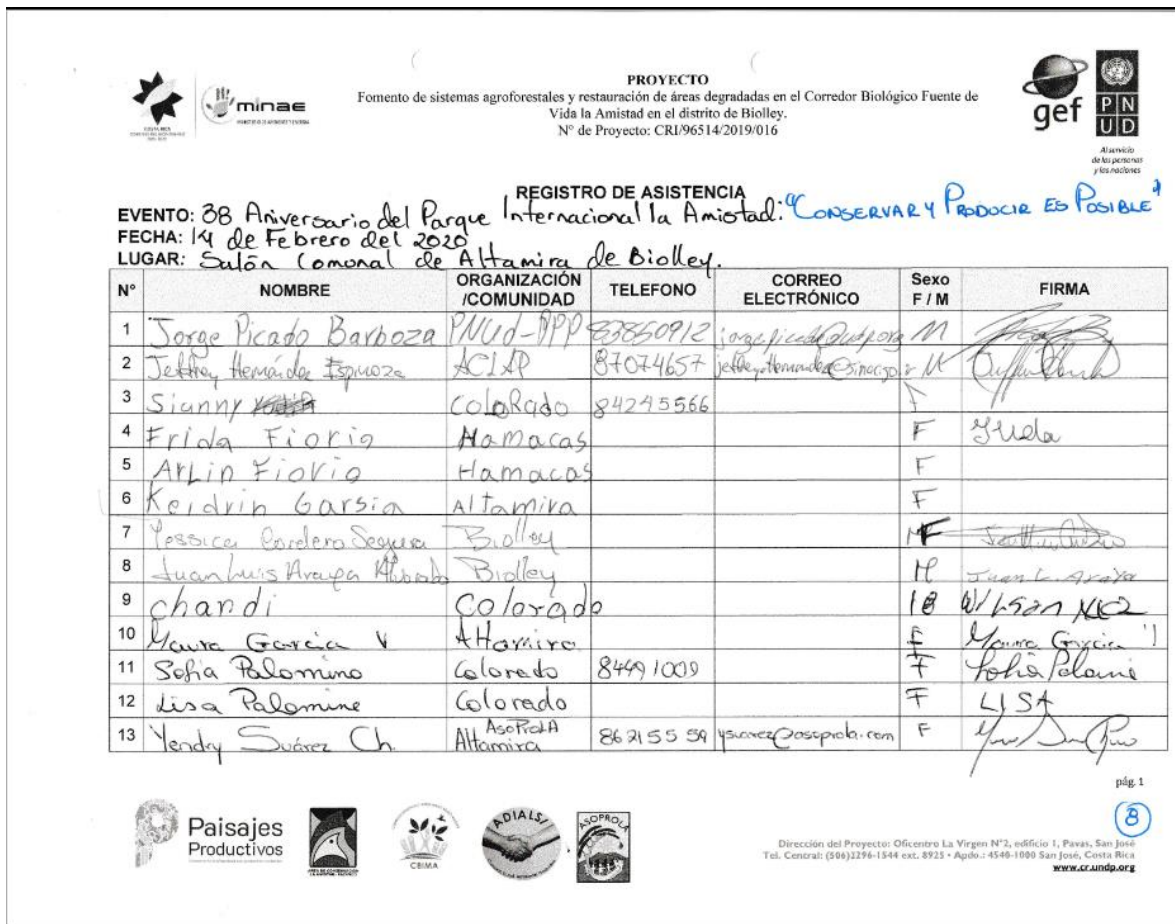 COSTA RICA
minae
MINISTERIO DE AMBIENTE Y ENERGIA
PROYECTO
Fomento de sistemas agroforestales y restauración de áreas degradadas en el Corredor Biológico Fuente de
Vida la Amistad en el distrito de Biolley.
N° de Proyecto: CRI/96514/2019/016
gef
P N
U D
Al servicio
de las personas
y las naciones
REGISTRO DE ASISTENCIA
EVENTO: 38 Aniversario del Parque Internacional la Amistad: "CONSERVAR Y PRODUCIR ES POSIBLE"
FECHA: 14 de Febrero del 2020
LUGAR: Salón Comunal de Altamira de Biolley.
N° NOMBRE ORGANIZACIÓN /COMUNIDAD TELEFONO CORREO ELECTRÓNICO Sexo F / M FIRMA
1 Jorge Picado Barboza PNUd-PPP 83860912 M
2 Jeffrey Hernández Espinoza ACLAP 87074657 M
3 Sianny Colorado 84245566 F
4 Frida Fiorio Hamacas F Frida
5 Arlin Fiorio Hamacas F
6 Keidrin Garsia Altamira F
7 Yessica Cordero Segura Biolley F
8 Juan Luis Araya Biolley M Juan L. Araya
9 chandi Colorado
10 Maura García V Altamira F Maura García
11 Sofia Palomino Colorado 84491009 F Sofia
12 Lisa Palomino Colorado F LISA
13 Yendry Suárez Ch. AsoProLA Altamira 86215559 ysuarez@asoprola.com F
pág. 1
8
Paisajes
Productivos
CBIMA
ADIALS
ASOPROLA
Dirección del Proyecto: Oficentro La Virgen N°2, edificio 1, Pavas, San José
Tel. Central: (506)2296-1544 ext. 8925 • Apdo.: 4540-1000 San José, Costa Rica
www.cr.undp.org